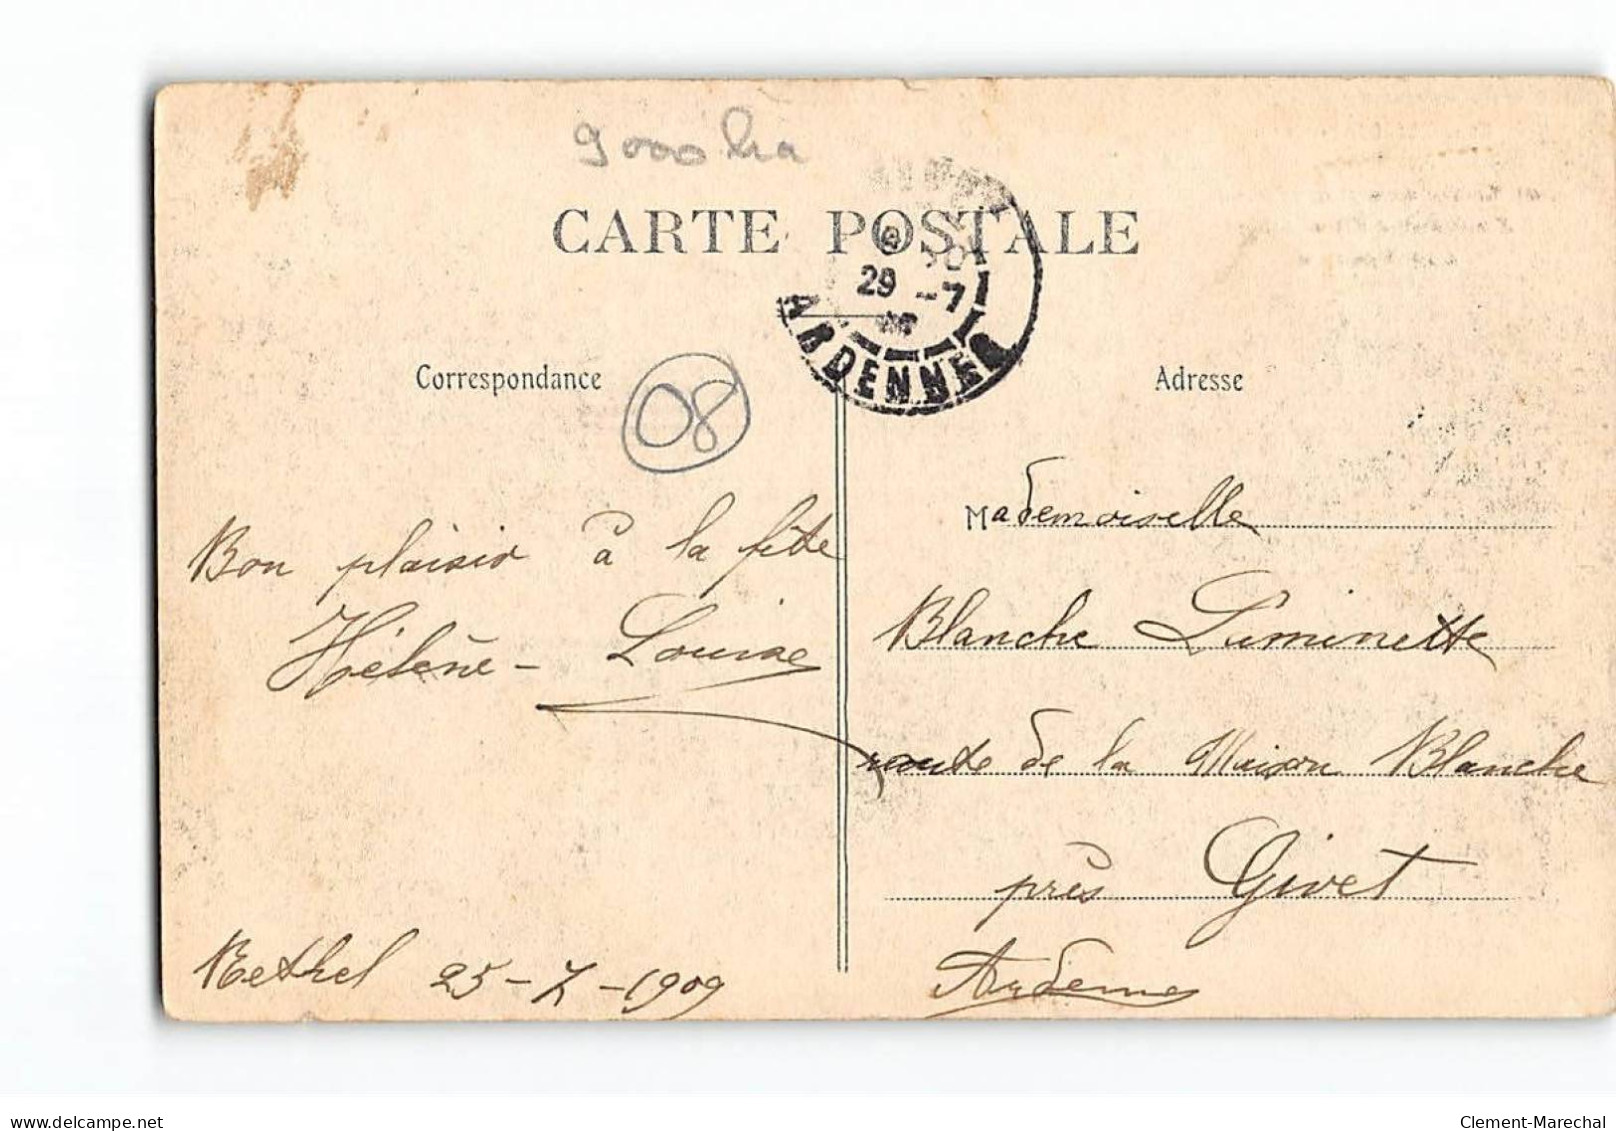 CARTE POSTALE
29 -7
ARDENNES
Correspondance
08
Adresse
Bon plaisir à la fête
Hélène - Louise
Rethel 25-7-1909
Mademoiselle
Blanche Luminette
route de la Maison Blanche
près Givet
Ardennes
www.delcampe.net
Clement-Marechal